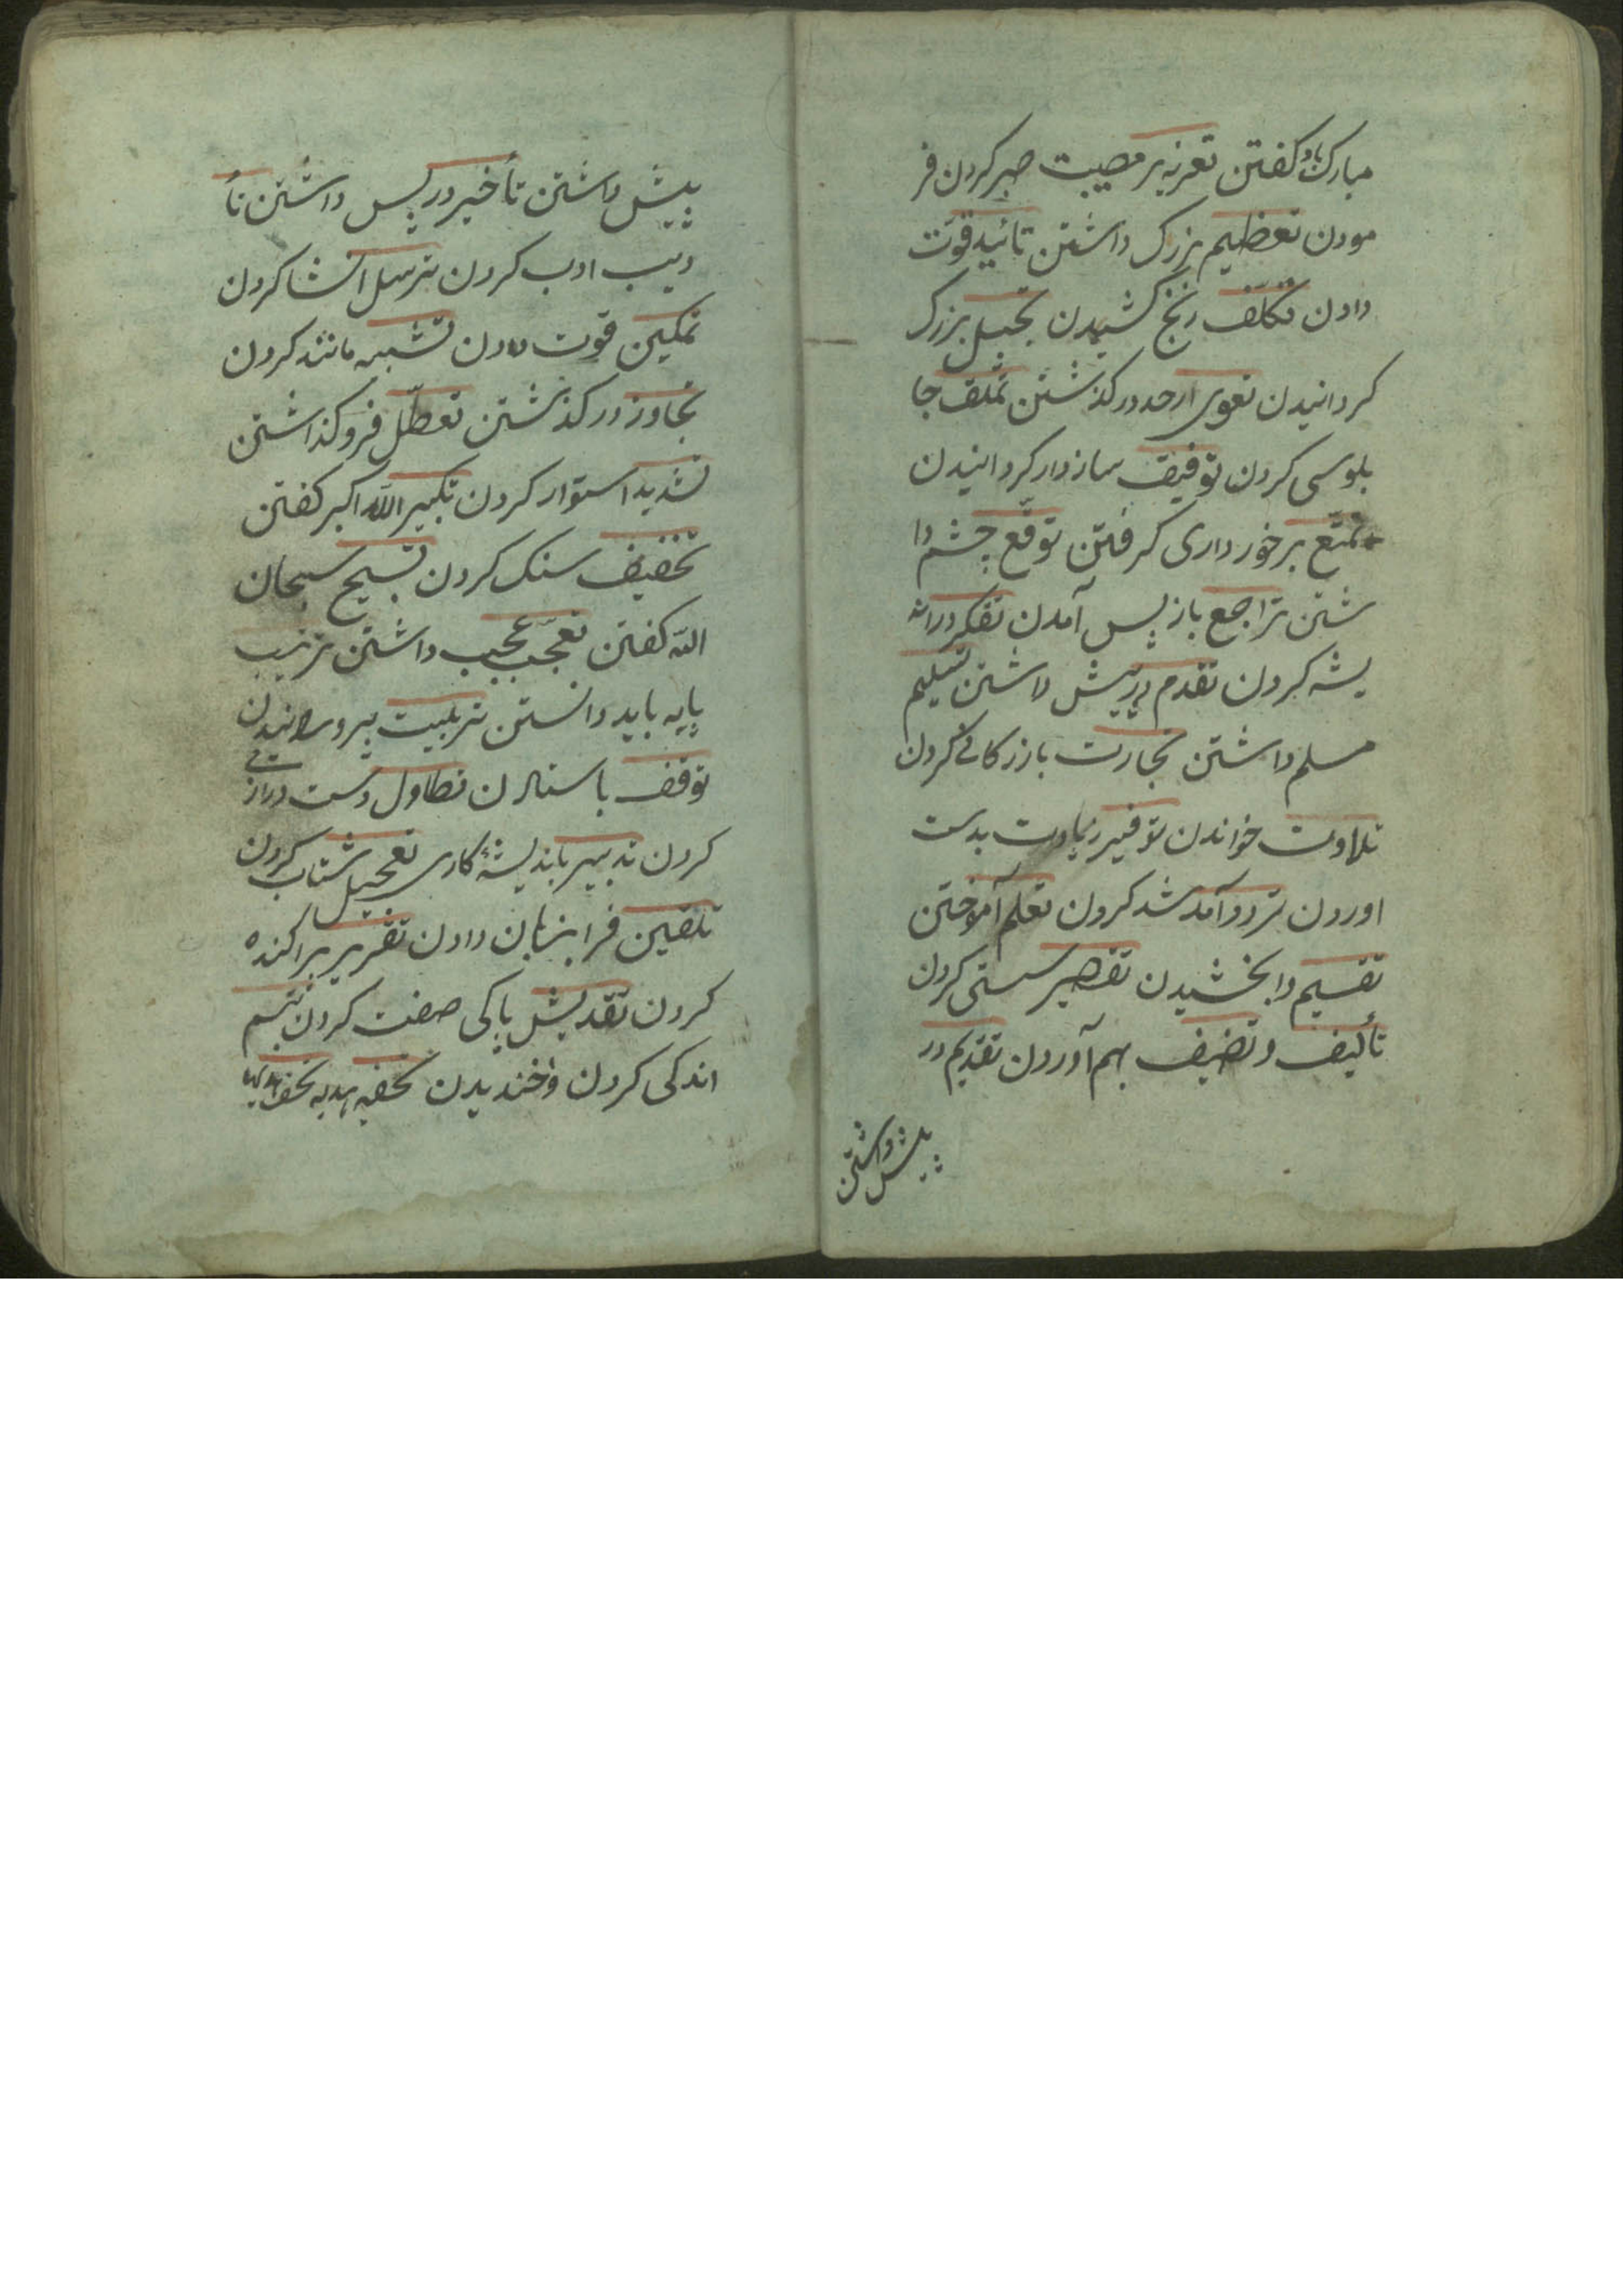 مبارک باد کفتن تعزیه بر مصیبت صبر کردن فر
مودن تعظیم بزرک داشتن تائید قوّت
دادن تکلّف رنج کشیدن تبجیل بزرک
کردانیدن تعوی ازحد درکذشتن تملّق چا
بلوسی کردن توفیق سازوار کردانیدن
تمتّع برخورداری کرفتن توقّع چشم دا
شتن تراجع باز پس آمدن تفکر در اند
یشه کردن تقدم در پیش داشتن تسلیم
مسلم داشتن تجارت بازرکانی کردن
تلاوت خواندن توفیر زیاوت بدست
اوردن تردد آمد شد کردن تعلم آموختن
تقسیم وابخشیدن تقصیر سستی کردن
تألیف و تضیف بهم آوردن تقدیم در
پیش داشتن
پیش داشتن تأخیر در پس داشتن تأ
دیب ادب کردن ترسل انشا کردن
تمکین قوت دادن تشبیه مانند کردن
تجاوز درکذشتن تعطّل فروکذاشتن
تشدید استوار کردن تکبیر الله اکبر کفتن
تخفیف سبک کردن تسبیح سبحان
الله کفتن تعجّب عجیب داشتن ترتیب
پایه باید دانستن تربیت پرورانیدن
توقف باستادن تطاول دست درازی
کردن تدبیر باندیشۀ کاری تعجیل شتاب کردن
تلقین فرا بزبان دادن تفریر پراکنده
کردن تقدیش پاکی صفت کردن تبسم
اندکی کردن وخندیدن تحفه هدیه تحف